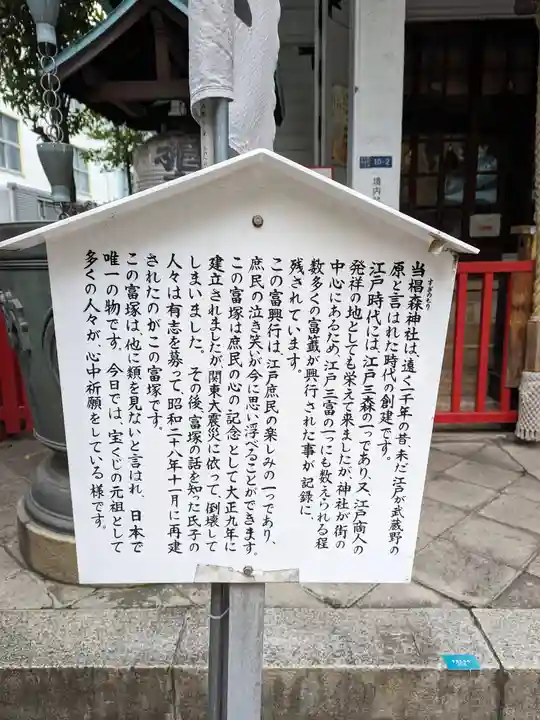 当椙森神社は、遠く一千年の昔、未だ江戸が武蔵野の
すぎのもり
原と言はれた時代の創建です。
江戸時代には、江戸三森の一つであり、又、江戸商人の
発祥の地としても栄えて来ましたが、神社が街の
中心にあるため、江戸三富の一つにも数えられる程
数多くの富籤が興行された事が記録に、
残されています。
この富興行は、江戸庶民の楽しみの一つであり、
庶民の泣き笑いが今に思い浮べることができます。
この富塚は庶民の心の記念として大正九年に
建立されましたが関東大震災に依って、倒壊して
しまいました。その後、富塚の話を知った氏子の
人々は有志を募って、昭和二十八年十一月に再建
されたのがこの富塚です。
この富塚は、他に類を見ないと言はれ、日本で
唯一の物です。今日では、宝くじの元祖として
多くの人々が、心中祈願をしている様です。
10-2
境内